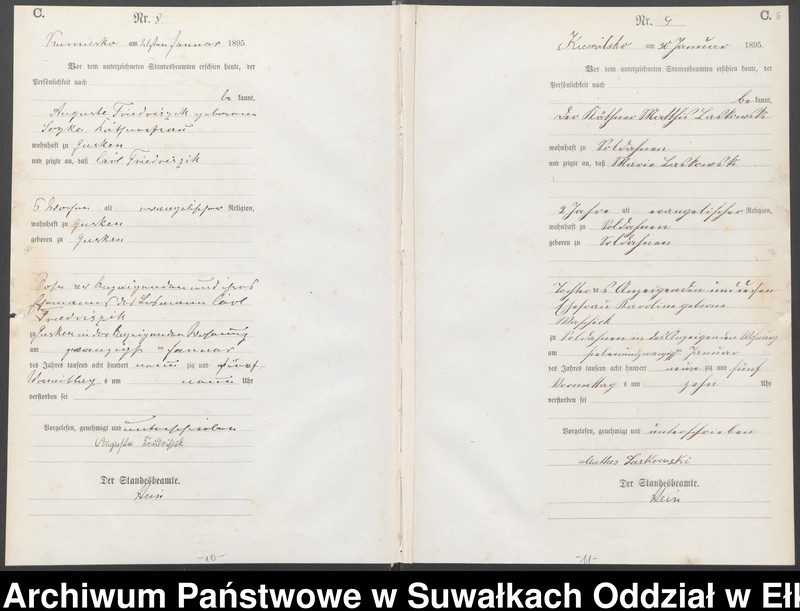 C.
Nr. 8
am Januar 1895.
Vor dem unterzeichneten Standesbeamten erschien heute, der
Persönlichkeit nach
be kannt,
Auguste Friedriszik geborene
wohnhaft zu Gusken
und zeigte an, daß Carl Friedriszik
6 Wochen alt evangelischer Religion,
wohnhaft zu Gusken
geboren zu Gusken
Sohn der Anzeigenden und ihres
Ehemannes des Losmann Carl
Friedriszik
zu Gusken in der Anzeigenden Wohnung
am Januar
des Jahres tausend acht hundert neun zig und fünf
Vormittag s um neun Uhr
verstorben sei
Vorgelesen, genehmigt und unterschrieben
Auguste Friedriszik
Der Standesbeamte.
Hein
-10-
Nr. 9
C. 6
am 30 Januar 1895.
Vor dem unterzeichneten Standesbeamten erschien heute, der
Persönlichkeit nach
be kannt,
der Käthner Matthis Laskowski
wohnhaft zu Soldahnen
und zeigte an, daß Marie Laskowski
2 Jahre alt evangelischer Religion,
wohnhaft zu Soldahnen
geboren zu Soldahnen
Tochter des Anzeigenden und dessen
Ehefrau Karoline geborene
zu Soldahnen in des Anzeigenden Wohnung
am siebenundzwanzigsten Januar
des Jahres tausend acht hundert neun zig und fünf
Vormittag s um zehn Uhr
verstorben sei
Vorgelesen, genehmigt und unterschrieben
Mathes Laskowski
Der Standesbeamte.
Hein
-11-
Archiwum Państwowe w Suwałkach Oddział w Eł